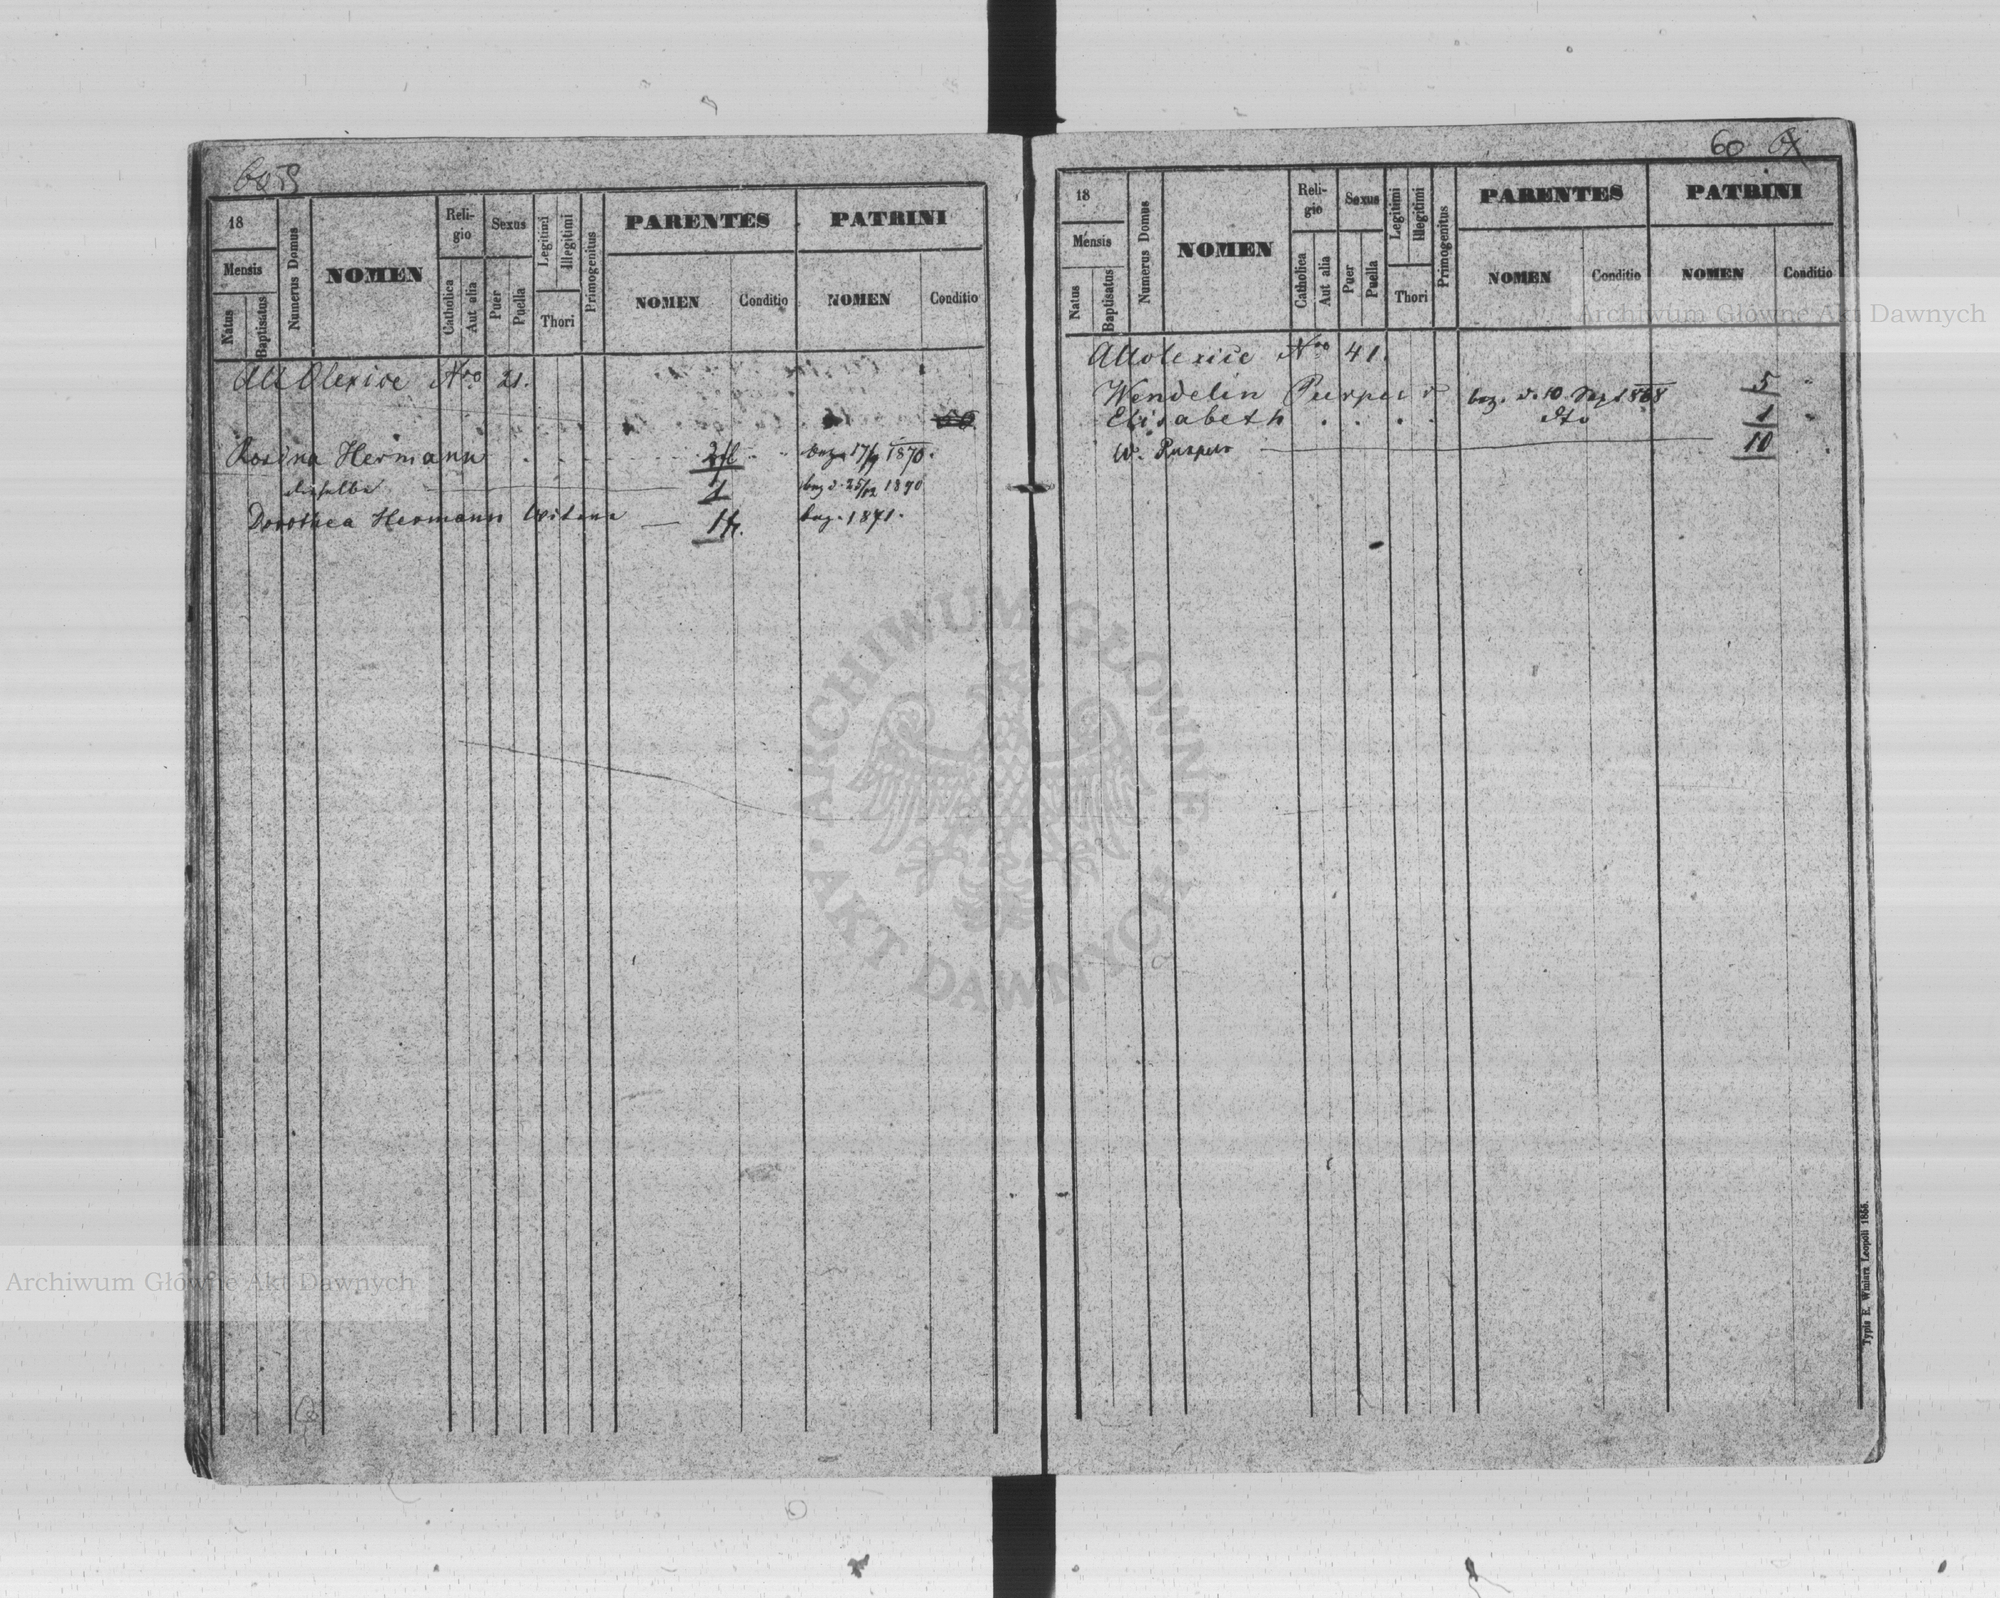 18
Mensis
Natus
Baptisatus
Numerus Domus
NOMEN
Religio
Catholica
Aut alia
Sexus
Puer
Puella
Legitimi
Illegitimi
Thori
Primogenitus
PARENTES
NOMEN
Conditio
PATRINI
NOMEN
Conditio
Alt Olexice Nro 21.
Rosina Hermann 2 fl bez. 17/9 1870.
dieselbe 1 bez d. 25/12 1870
Dorothea Hermann 1 fl. bez. 1871.
60
18
Mensis
Natus
Baptisatus
Numerus Domus
NOMEN
Religio
Catholica
Aut alia
Sexus
Puer
Puella
Legitimi
Illegitimi
Thori
Primogenitus
PARENTES
NOMEN
Conditio
PATRINI
NOMEN
Conditio
Altolexice Nro 41.
Wendelin Purpur bez. d. 10 Sept 868 5
Elisabeth . . . . dto 1
W. Purpur 10
Typis E. Winiarz Leopoli 1858.
Archiwum Główne Akt Dawnych
ARCHIWUM GŁÓWNE · AKT DAWNYCH ·
Archiwum Główne Akt Dawnych